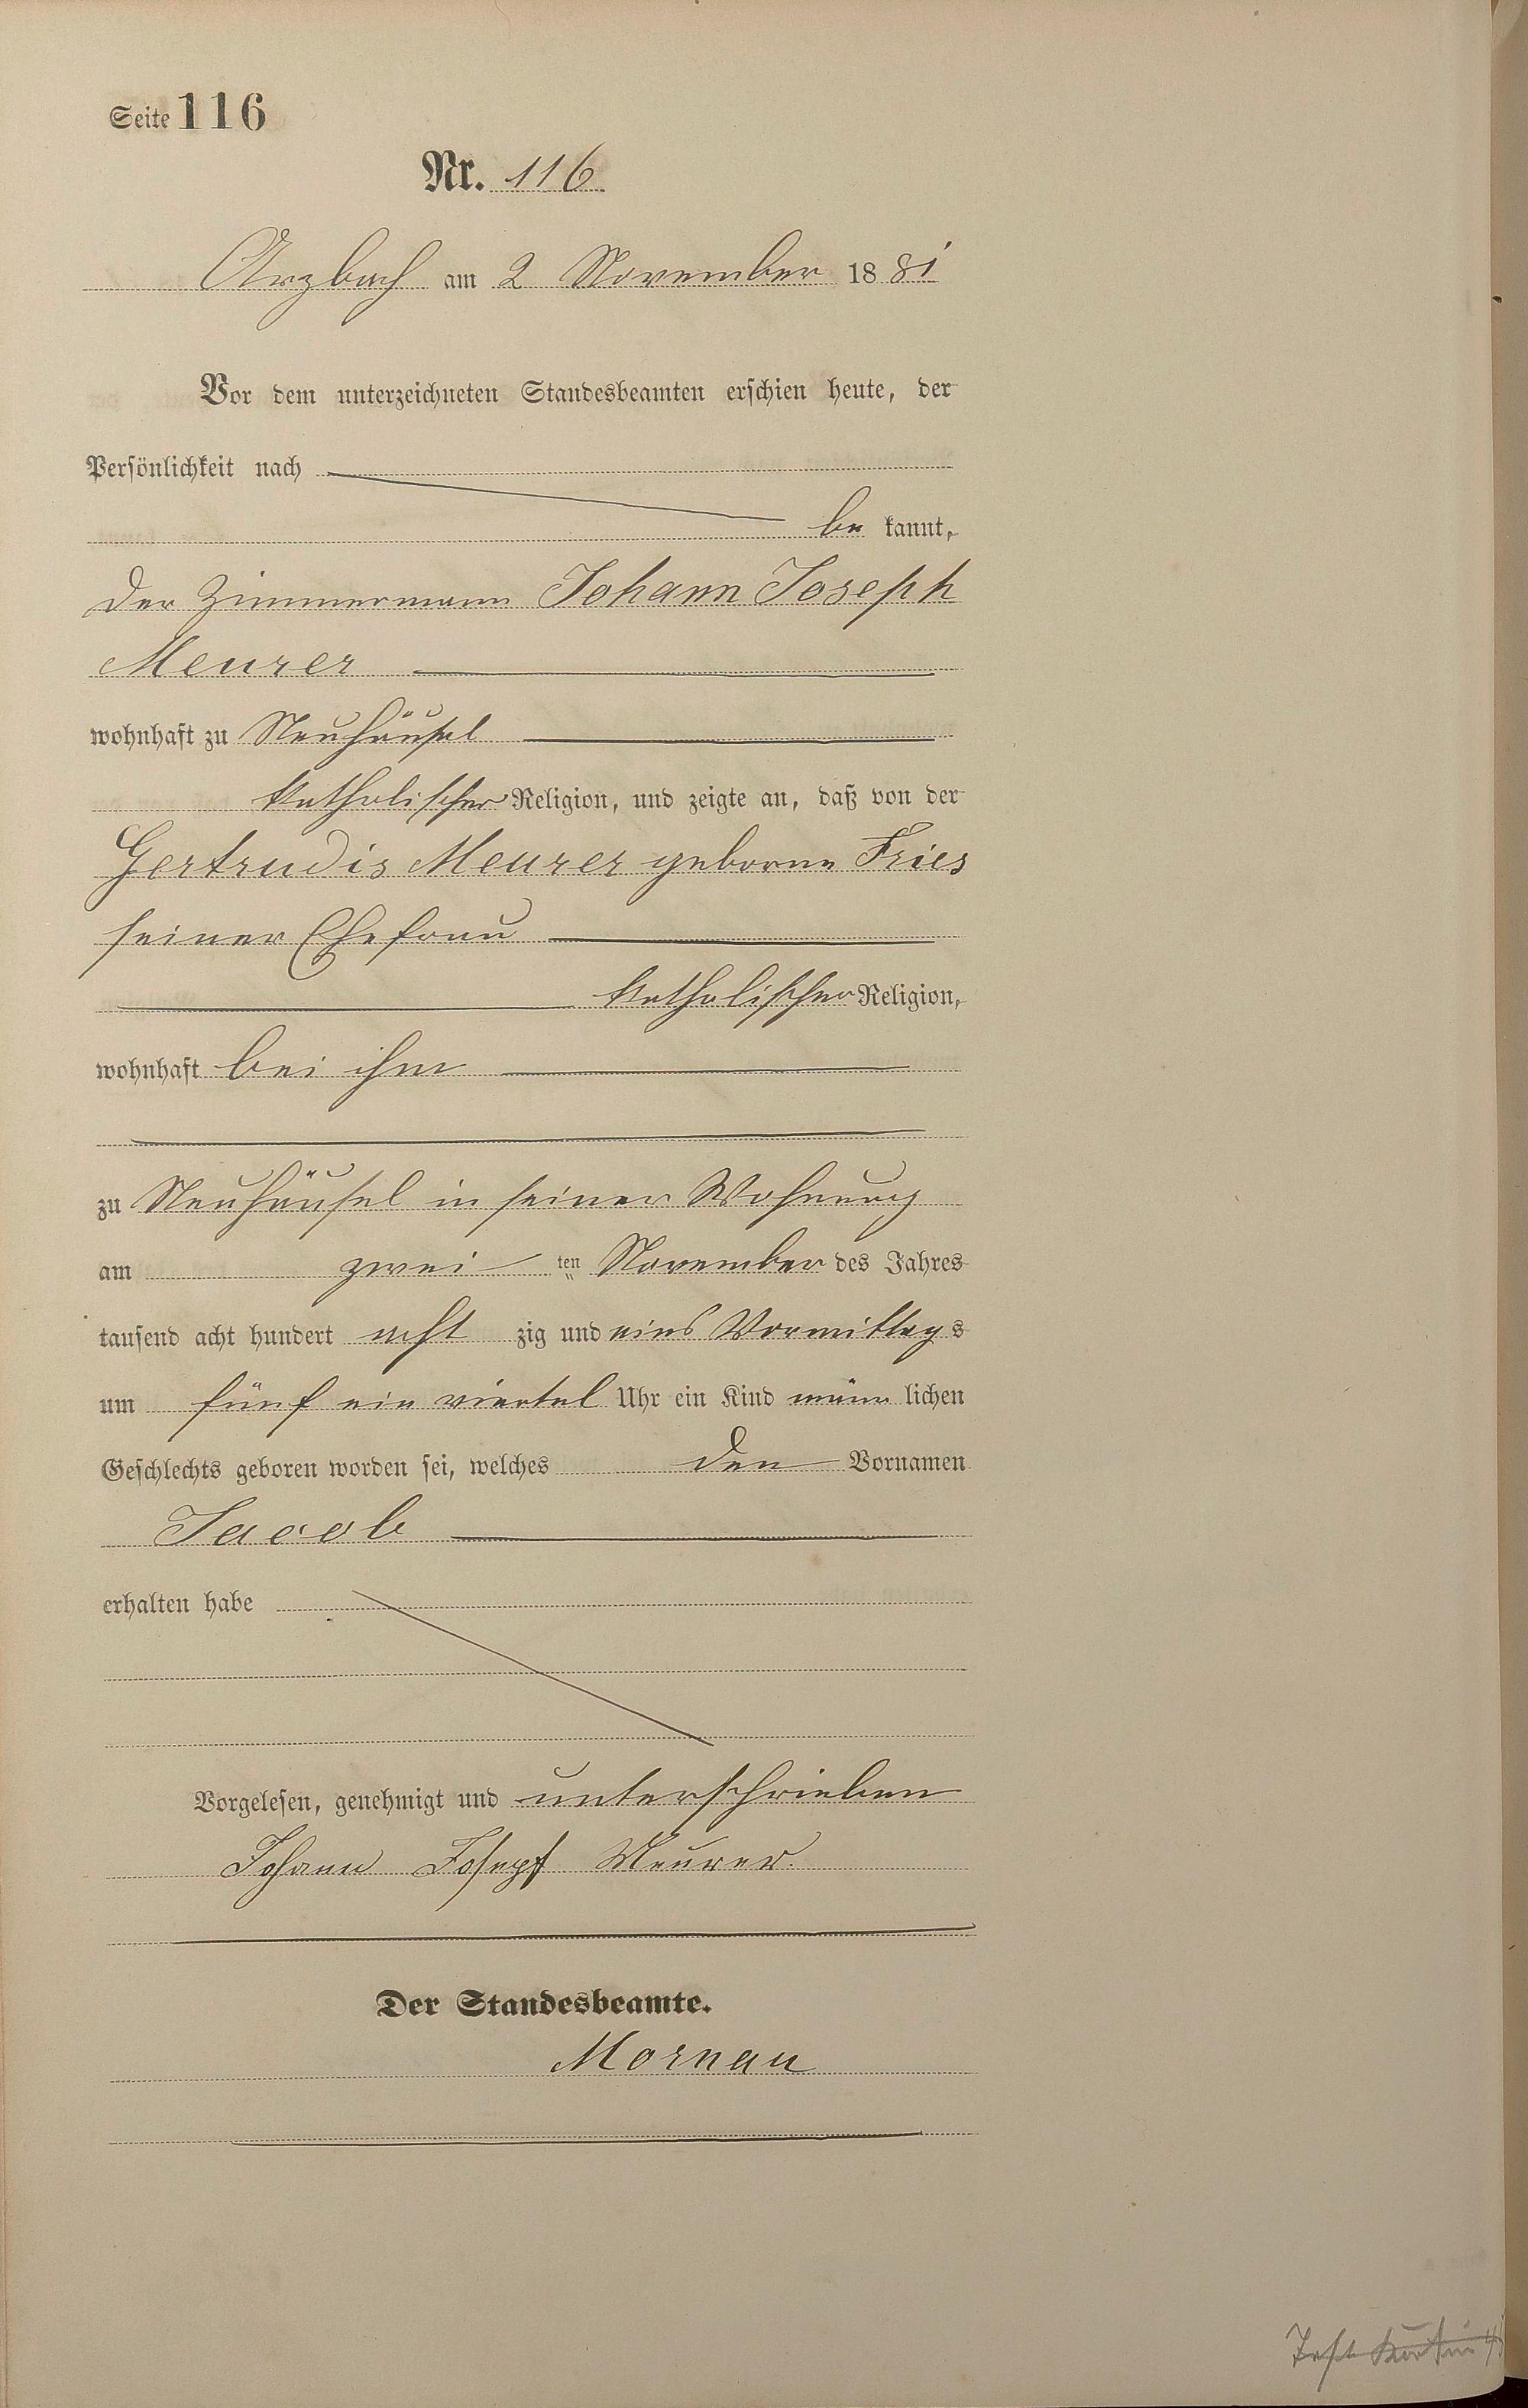 Seite 116
Nr. 116.
Arzbach am 2 November 1881
Vor dem unterzeichneten Standesbeamten erschien heute, der
Persönlichkeit nach
be kannt,
der Zimmermann Johann Joseph
Meurer
wohnhaft zu Neuhäusel
katholischer Religion, und zeigte an, daß von der
Gertrudis Meurer geborne Fries
seiner Ehefrau
katholischer Religion,
wohnhaft bei ihm
zu Neuhäusel in seiner Wohnung
am zwei ten November des Jahres
tausend acht hundert acht zig und eins Vormittags
um fünf ein viertel Uhr ein Kind männ lichen
Geschlechts geboren worden sei, welches den Vornamen
Jacob
erhalten habe
Vorgelesen, genehmigt und unterschrieben
Johann Josepf Meurer.
Der Standesbeamte.
Mornau